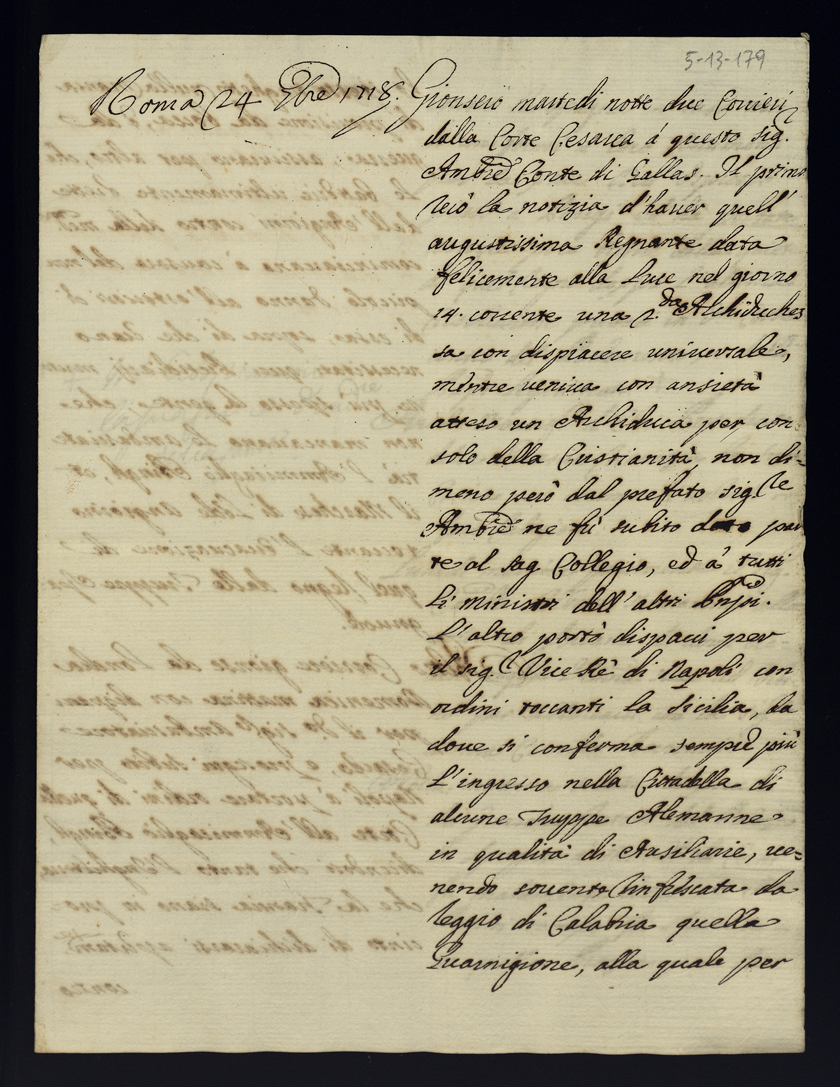 5-13-179
Roma 24 7bre 1718.
Gionsero martedi notte due Corrieri
dalla Corte Cesarea á questo sig.
Ambre Conte di Gallas. Il primo
recò la notizia d'hauer quell'
augustissima Regnante data
felicemente alla luce nel giorno
14. corrente una 2.da Archiduches
sa con dispiacere universale,
mentre veniva con ansietà
atteso un Archiduca per con
solo della Cristianità, non di=
meno però dal prefato sig.le
Ambre ne fù subito dato par
te al sag Collegio, ed à tutti
li Ministri dell'altri
L'altro portò dispacci per
il sig. Vice Rè di Napoli con
ordini toccanti la Sicilia, da
doue si conferma sempre più
l'ingresso nella Cittadella di
alcune Truppe Alemanne
in qualità di Ausiliarie, ue=
nendo souente rinfrescata da
Reggio di Calabria quella
Guarnigione, alla quale per